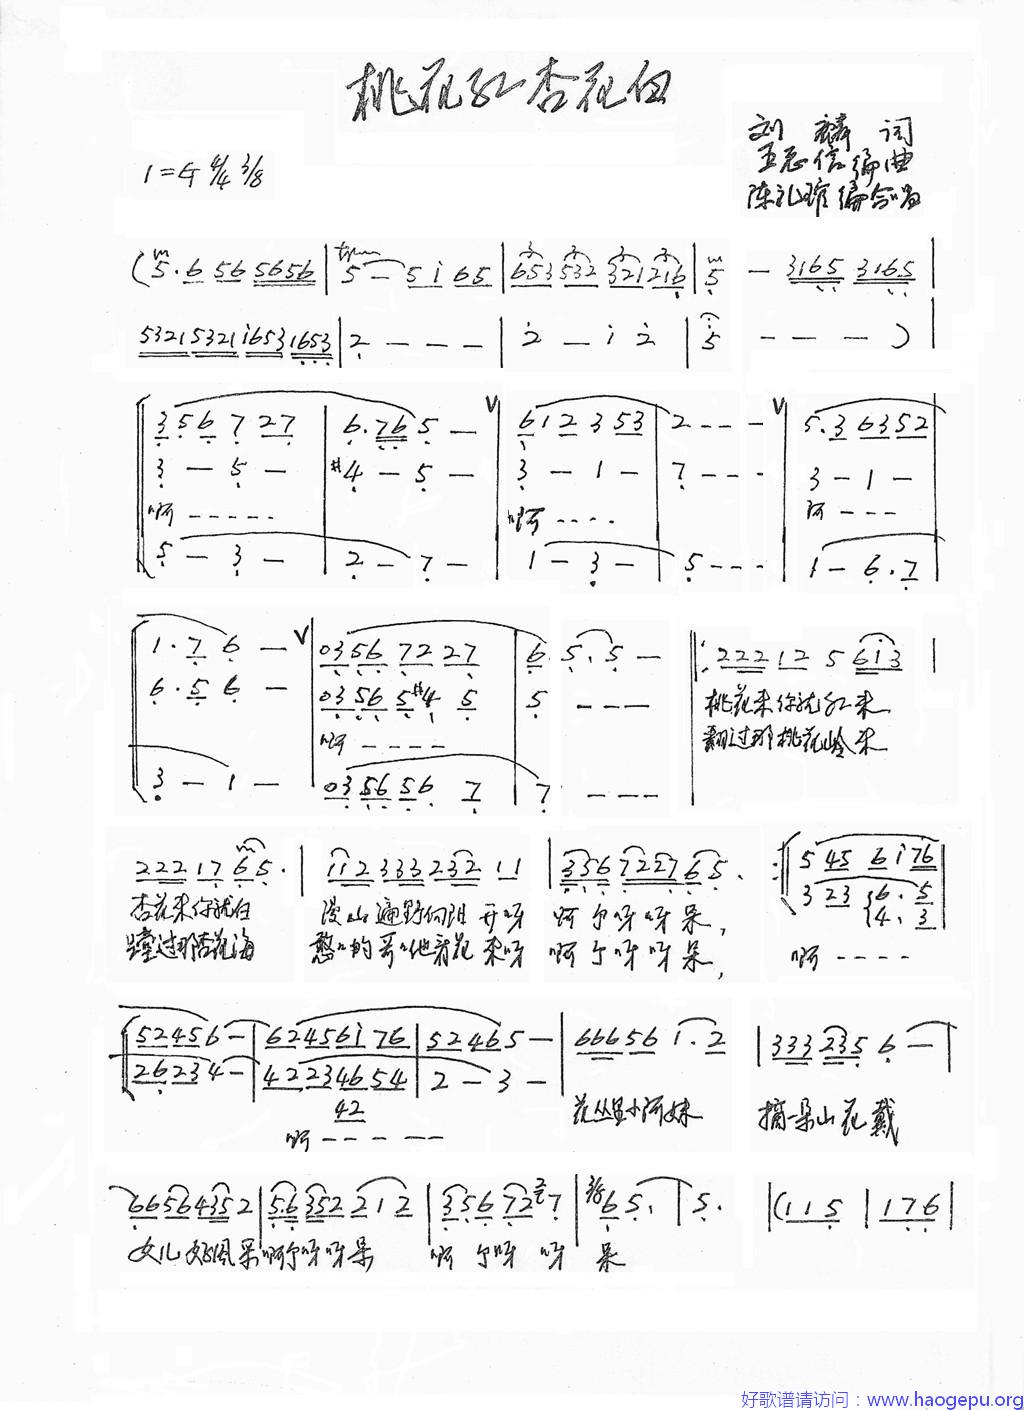 桃花红杏花白
刘麟词
王志信编曲
陈礼瑄编合唱
4/4 3/8
(5·6 56 5656 | 5 - 5i 65 | 653 532 321 216 | 5 - 3165 3165 |
5321 5321 i653 1653 | 2 - - - - | 2 - i 2 | 5 - - - ) |
3 5 6 7 2 7 | 6·76 5 - | 6 1 2 3 5 3 | 2 - - - | 5·3 6352
3 - 5 - | #4 - 5 - | 3 - 1 - | 7 - - - | 3 - 1 -
啊 - - - - - 啊 - - - - 啊 - - -
5 - 3 - | 2 - 7 - | 1 - 3 - | 5 - - - | 1 - 6·7
1·7 6 - | 0356 72 27 | 6 5·5 - | 222 12 5 6i3 |
6·5 6 - | 0356 5#4 5 | 5 - - -
桃花来你就红来
啊 - - - -
翻过那桃花岭来
3 - 1 - | 0356 56 7 | 7 - - -
222 17 65· | 112 333 232 11 | 3356 7227 65· :| 5 45 6i76
3 23 6·5
4·3
杏花来你就白 漫山遍野向阳开呀 啊个呀呀呆,
蹚过那杏花海 憨憨的哥哥他看花来呀 啊个呀呀呆, 啊 - - - -
52456 - | 62456i 76 | 52465 - | 66656 i·2 | 333 235 6 - |
262 34 - | 4223 4654 | 2 - 3 -
42
花丛里小阿妹 摘一朵山花戴
啊 - - - - -
6656 4352 | 5·6 352 212 | 3 5 6 72 7 | 3/8 6 5· | 5· |(115 | 176 |
女儿好风采啊个呀呀呆 啊个呀呀呆
好歌谱请访问：www.haogepu.org